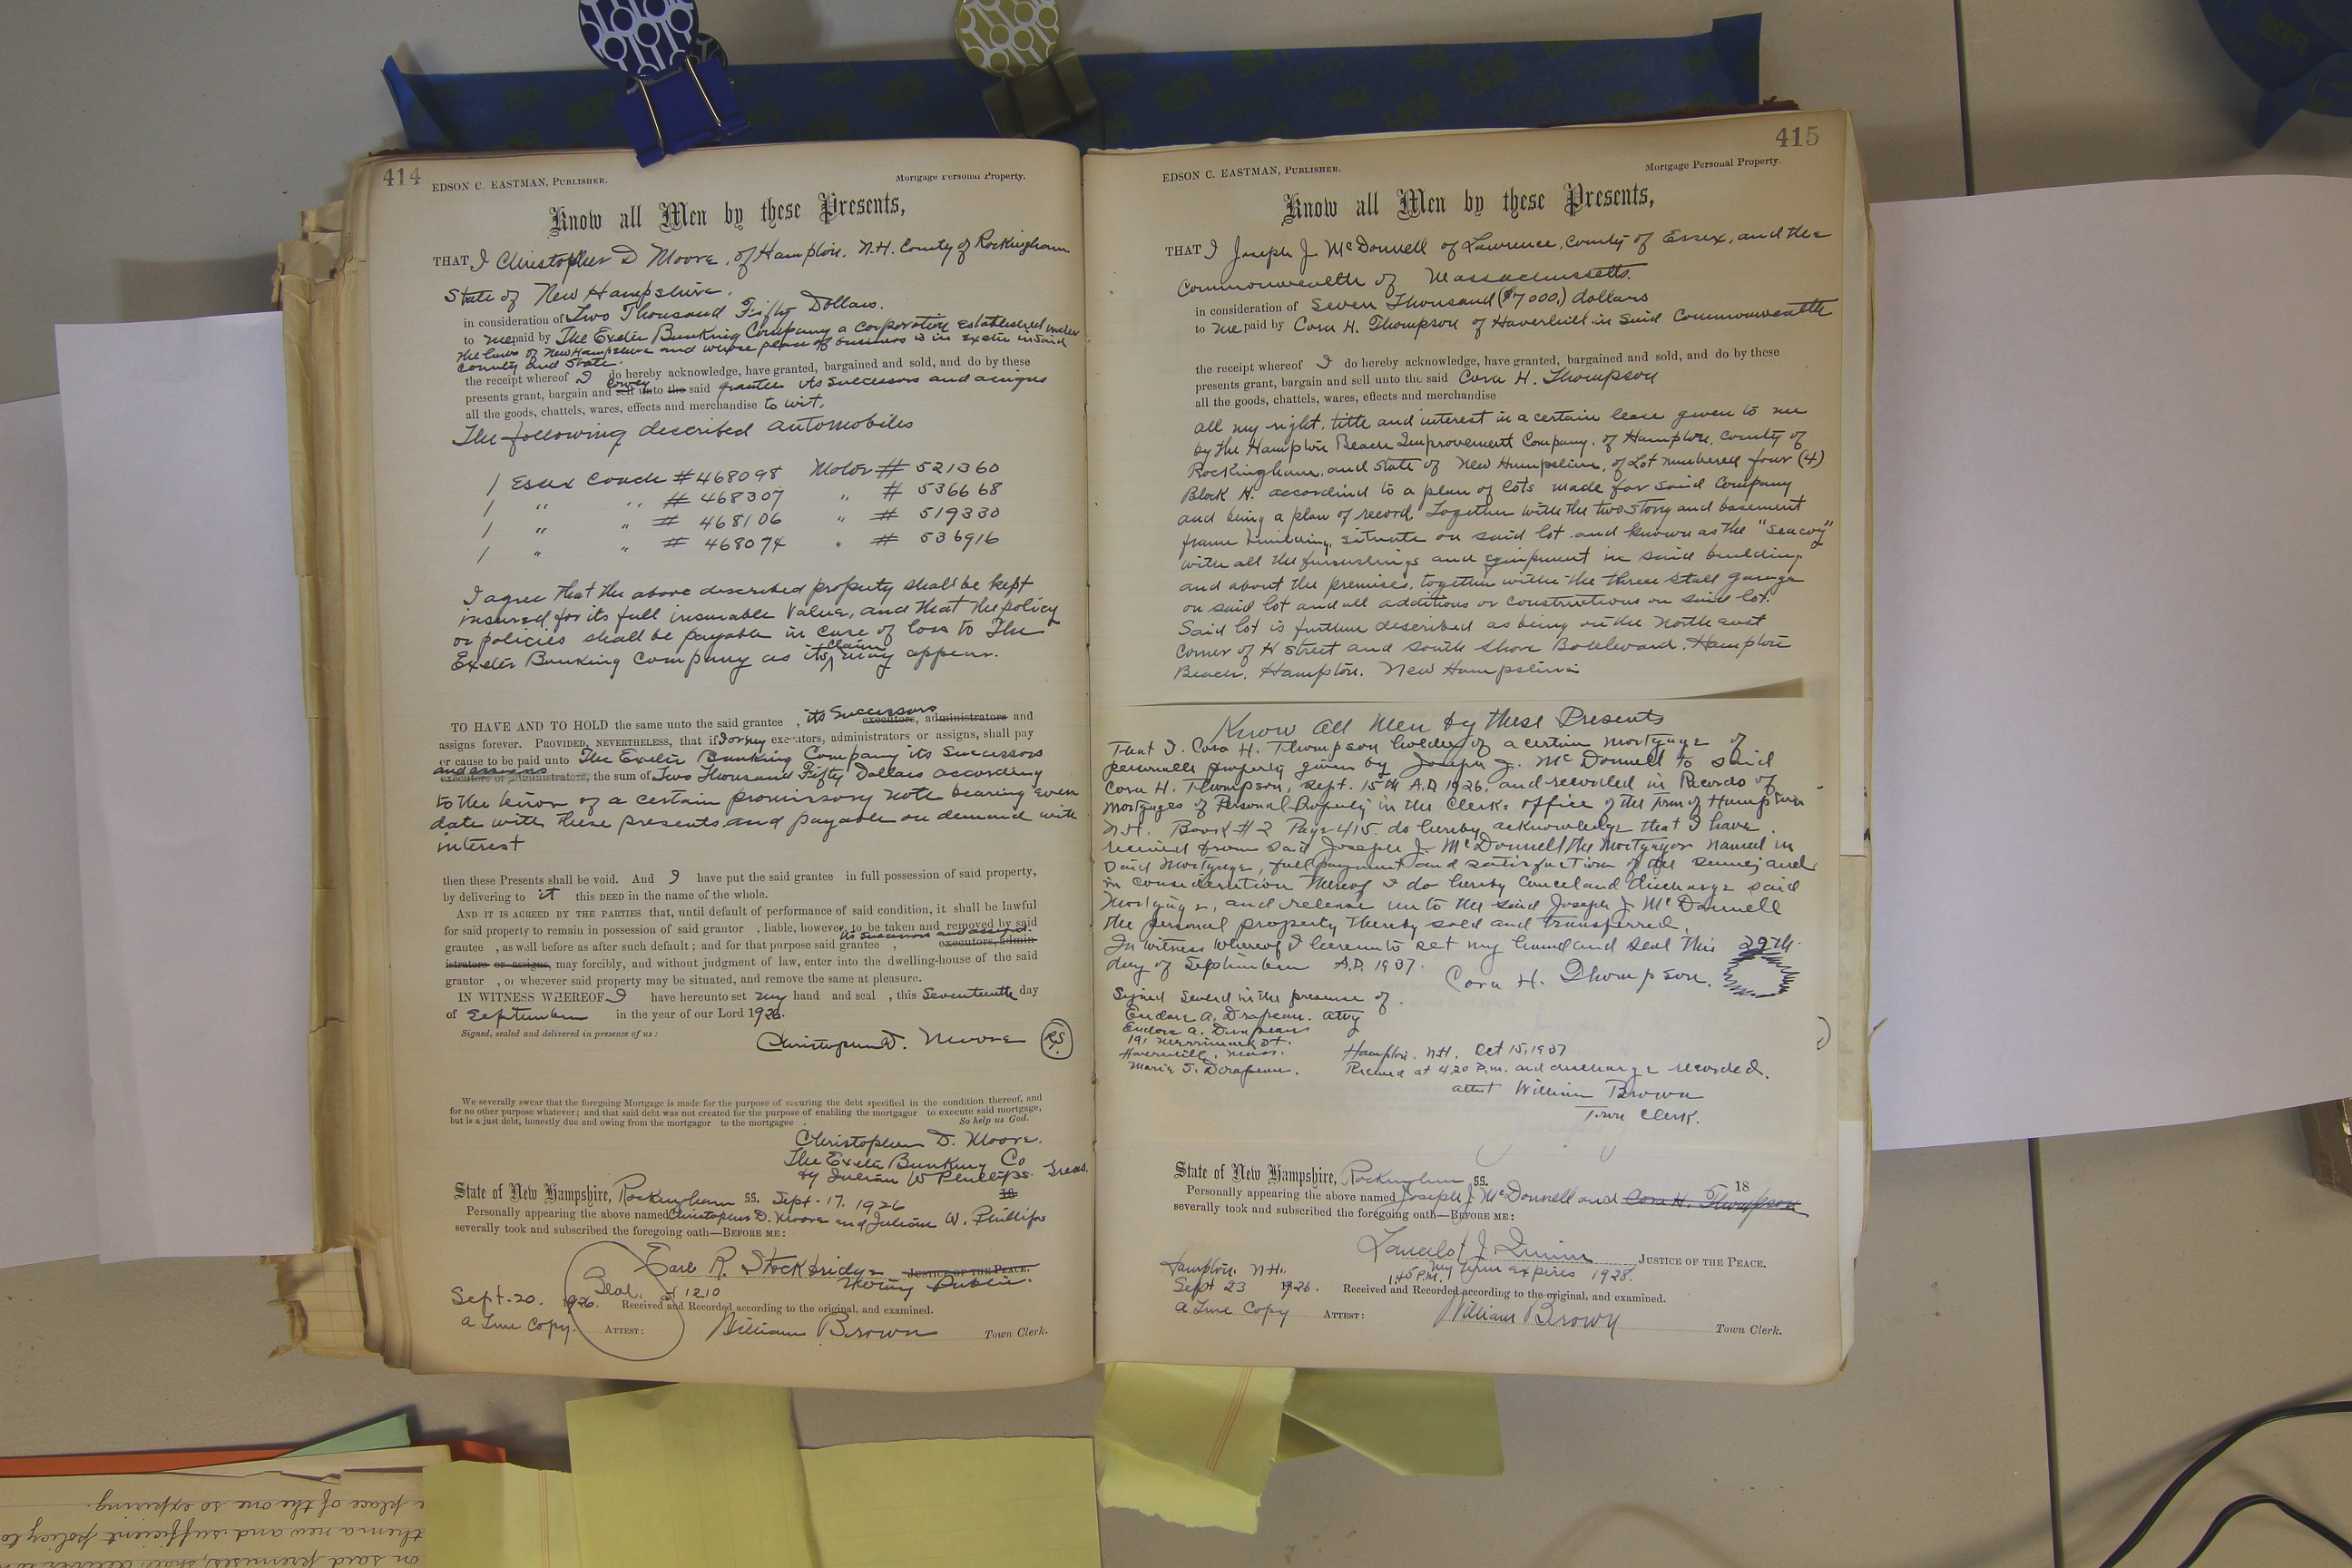 414
EDSON C. EASTMAN, PUBLISHER.
Mortgage Personal Property.
Know all Men by these Presents,
THAT I Christopher D Moore, of Hampton, N.H. County of Rockingham
State of New Hampshire.
in consideration of Two Thousand Fifty Dollars.
to me paid by The Exeter Banking Company a corporation established under
the laws of New Hampshire and whose place of business is in Exeter in said
County and State
the receipt whereof I do hereby acknowledge, have granted, bargained and sold, and do by these
presents grant, bargain and sell convey unto the said grantee its successors and assigns
all the goods, chattels, wares, effects and merchandise to wit,
The following described automobiles
1 Essex Coach #468098 Motor # 521360
1 " " # 468307 " # 536668
1 " " # 468106 " # 519330
1 " " # 468074 " # 536916
I agree that the above described property shall be kept
insured for its full insurable value, and that the policy
or policies shall be payable in case of loss to The
Exeter Banking Company as its claim may appear.
TO HAVE AND TO HOLD the same unto the said grantee , its successors executors, administrators and
assigns forever. PROVIDED, NEVERTHELESS, that if I or my executors, administrators or assigns, shall pay
or cause to be paid unto The Exeter Banking Company its successors
and assigns
executors or administrators, the sum of Two Thousand Fifty Dollars according
to the tenor of a certain promissory note bearing even
date with these presents and payable on demand with
interest
then these Presents shall be void. And I have put the said grantee in full possession of said property,
by delivering to it this DEED in the name of the whole.
AND IT IS AGREED BY THE PARTIES that, until default of performance of said condition, it shall be lawful
for said property to remain in possession of said grantor , liable, however, to be taken and removed by said
its successors and assigns
grantee , as well before as after such default ; and for that purpose said grantee , executors, admin-
istrators or assigns, may forcibly, and without judgment of law, enter into the dwelling-house of the said
grantor , or wherever said property may be situated, and remove the same at pleasure.
IN WITNESS WHEREOF I have hereunto set my hand and seal , this Seventeenth day
of September in the year of our Lord 1926.
Signed, sealed and delivered in presence of us :
Christopher D. Moore
We severally swear that the foregoing Mortgage is made for the purpose of securing the debt specified in the condition thereof, and
for no other purpose whatever ; and that said debt was not created for the purpose of enabling the mortgagor to execute said mortgage,
but is a just debt, honestly due and owing from the mortgagor to the mortgagee
So help us God.
Christopher D. Moore.
The Exeter Banking Co
by Julian W Phillips Treas.
State of New Hampshire, Rockingham ss. Sept. 17, 1926 18
Personally appearing the above named Christopher D. Moore and Julian W. Phillips
severally took and subscribed the foregoing oath—BEFORE ME :
Earle R. Stockbridge JUSTICE OF THE PEACE.
Notary Public.
Seal. at 1210
Sept. 20. 1926. Received and Recorded according to the original, and examined.
a True Copy. ATTEST : William Brown Town Clerk.
415
EDSON C. EASTMAN, PUBLISHER.
Mortgage Personal Property.
Know all Men by these Presents,
THAT I Joseph J. McDonnell of Lawrence, County of Essex, and the
Commonwealth of Massachusetts.
in consideration of Seven Thousand ($7000,) dollars
to me paid by Cora H. Thompson of Haverhill in said Commonwealth
the receipt whereof I do hereby acknowledge, have granted, bargained and sold, and do by these
presents grant, bargain and sell unto the said Cora H. Thompson
all the goods, chattels, wares, effects and merchandise
all my right, title and interest in a certain lease given to me
by the Hampton Beach Improvement Company, of Hampton, County of
Rockingham, and State of New Hampshire, of Lot numbered four (4)
Block H. accordind to a plan of lots made for said Company
and being a plan of record. Together with the two story and basement
frame building, situate on said lot and known as the
with all the furnishings and equipment in said building
and about the premises, together with the three stall garage
on said lot and all additions or constructions on said lot.
Said lot is further described as being on the North east
corner of H street and South Shore Boulevard, Hampton
Beach, Hampton, New Hampshire
Know All Men by these Presents
That I, Cora H. Thompson holder of a certain mortgage of
personal property given by Joseph J. McDonnell to said
Cora H. Thompson, Sept. 15th A.D. 1926, and recorded in Records of
Mortgages of Personal Property in the Clerk's office of the Town of Hampton
N.H. Book #2 Page 415. do hereby acknowledge that I have
received from said Joseph J. McDonnell the Mortgagor named in
said Mortgage, full payment and satisfaction of the same; and
in consideration thereof I do hereby cancel and discharge said
Mortgage, and release unto the said Joseph J. McDonnell
the personal property thereby sold and transferred.
In witness whereof I hereunto set my hand and seal this 29th
day of September A.D. 1937.
Cora H. Thompson.
Signed Sealed in the presence of.
191 Merrimack St.
Haverhill, Mass.
Hampton, N.H. Oct 15, 1937
Received at 4.20 P.m. and discharge recorded.
attest William Brown
Town Clerk.
State of New Hampshire, Rockingham ss. 18
Personally appearing the above named Joseph J. McDonnell and Cora H. Thompson
severally took and subscribed the foregoing oath—BEFORE ME :
Lancelot J. Quinn JUSTICE OF THE PEACE.
My term expires 1928.
Hampton N.H. 1.45 P.M.
Sept 23 1926. Received and Recorded according to the original, and examined.
a True Copy ATTEST : William Brown Town Clerk.